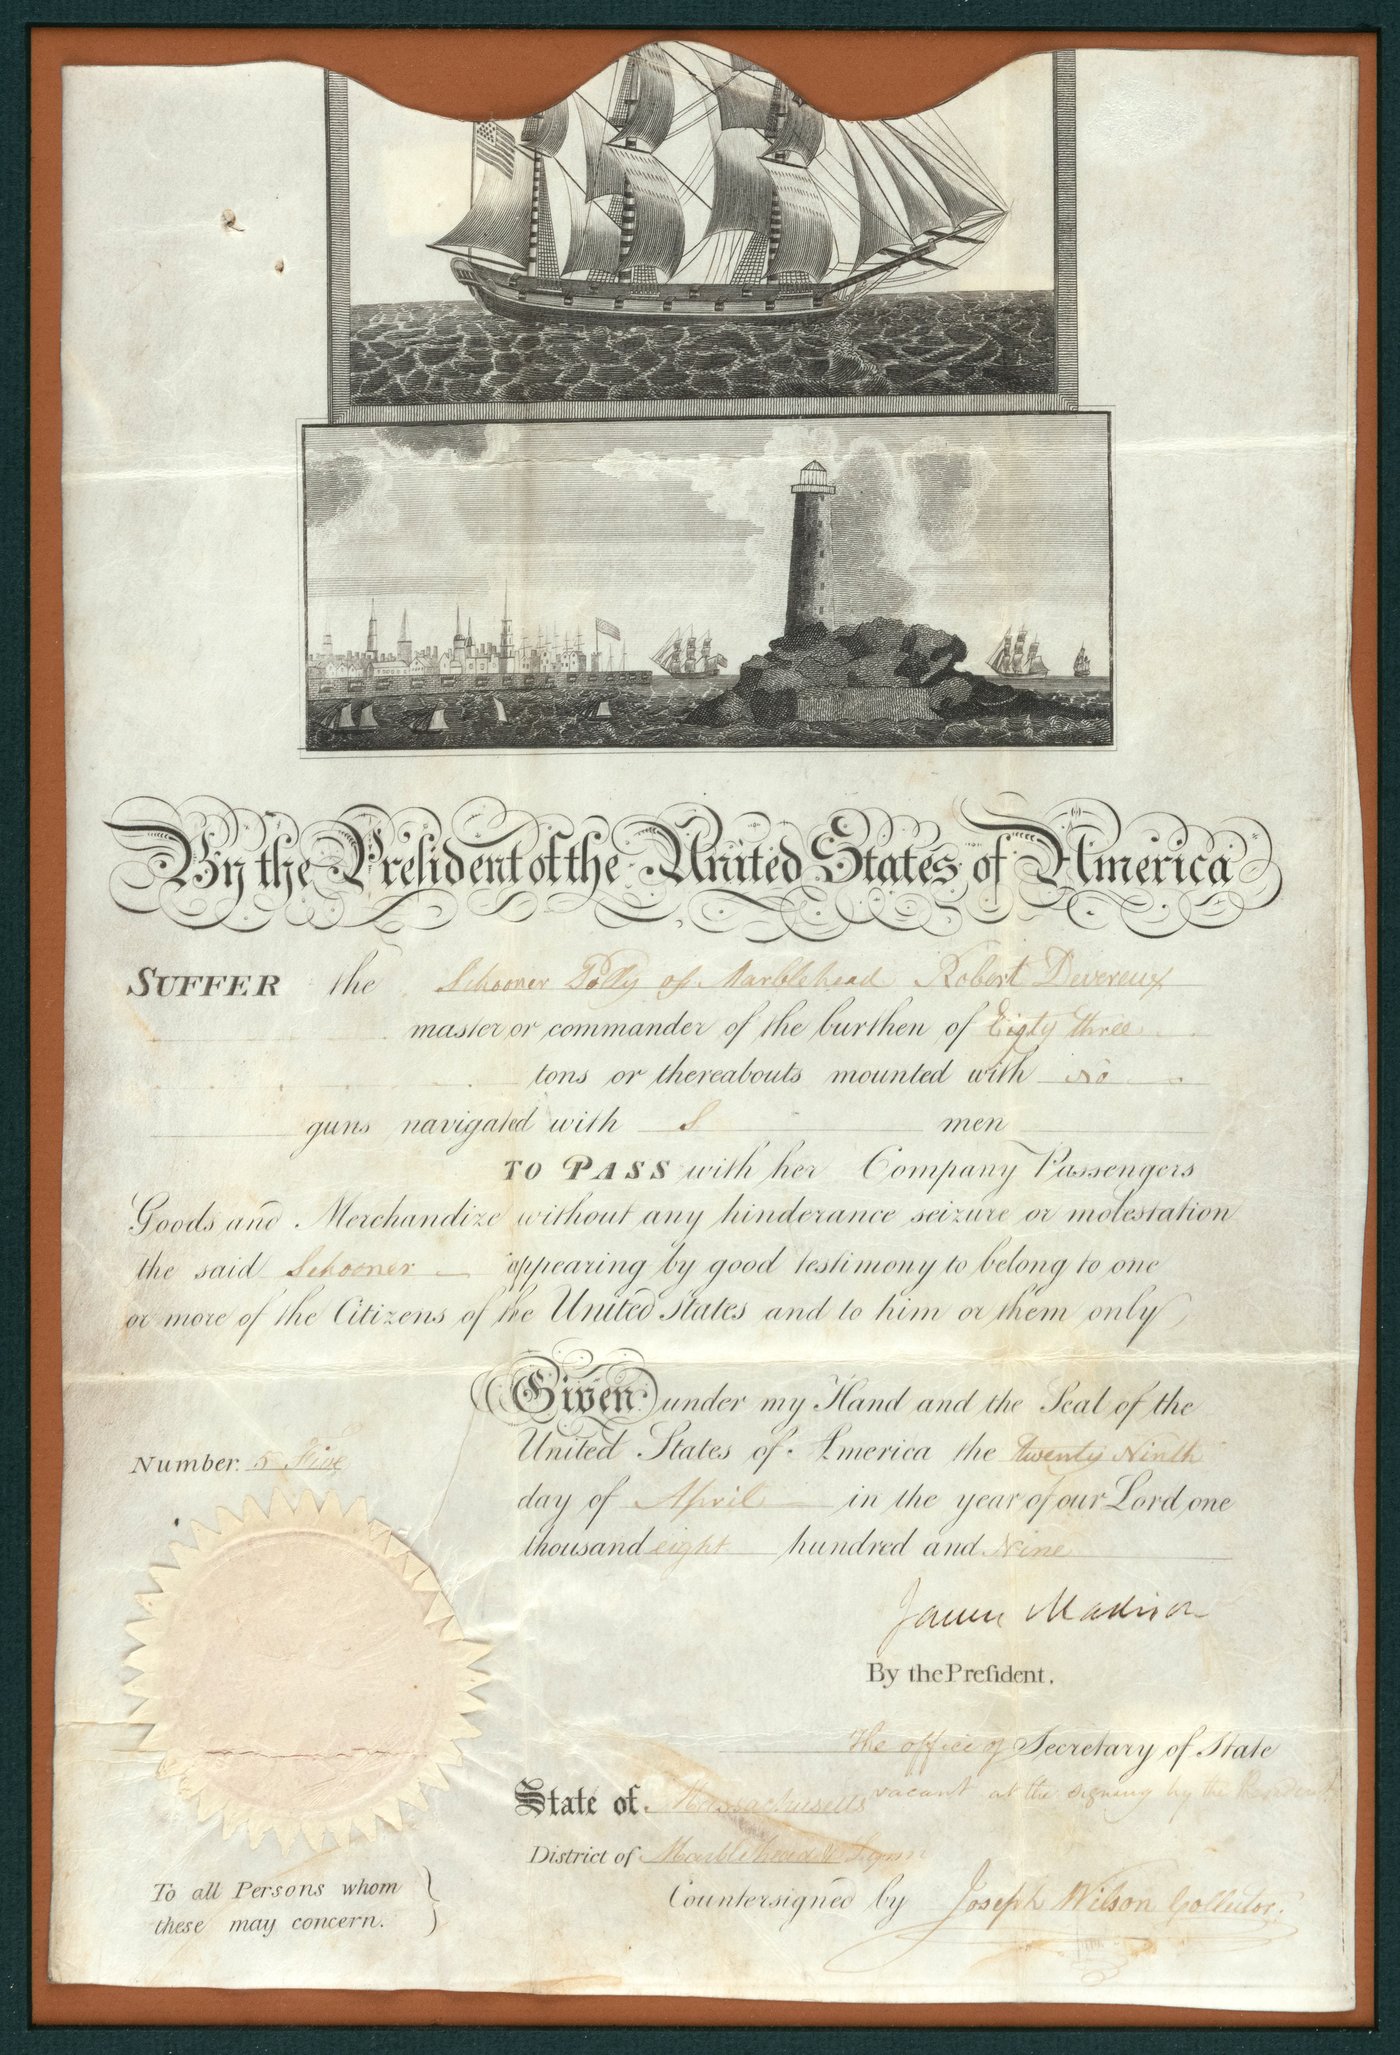 By the President of the United States of America
SUFFER the Schooner Polly of Marblehead Robert Devereux
master or commander of the burthen of Eigty three
tons or thereabouts mounted with no
guns navigated with men
TO PASS with her Company Passengers
Goods and Merchandize without any hinderance seizure or molestation
the said Schooner appearing by good testimony to belong to one
or more of the Citizens of the United States and to him or them only
Given under my Hand and the Seal of the
United States of America the twenty Ninth
Number. 5 Five
day of April in the year of our Lord, one
thousand eight hundred and Nine
James Madison
By the President.
The office of Secretary of State
vacant at the signing by the President
State of Massachusetts
District of Marblehead & Lynn
Countersigned by Joseph Wilson Collector.
To all Persons whom
these may concern.